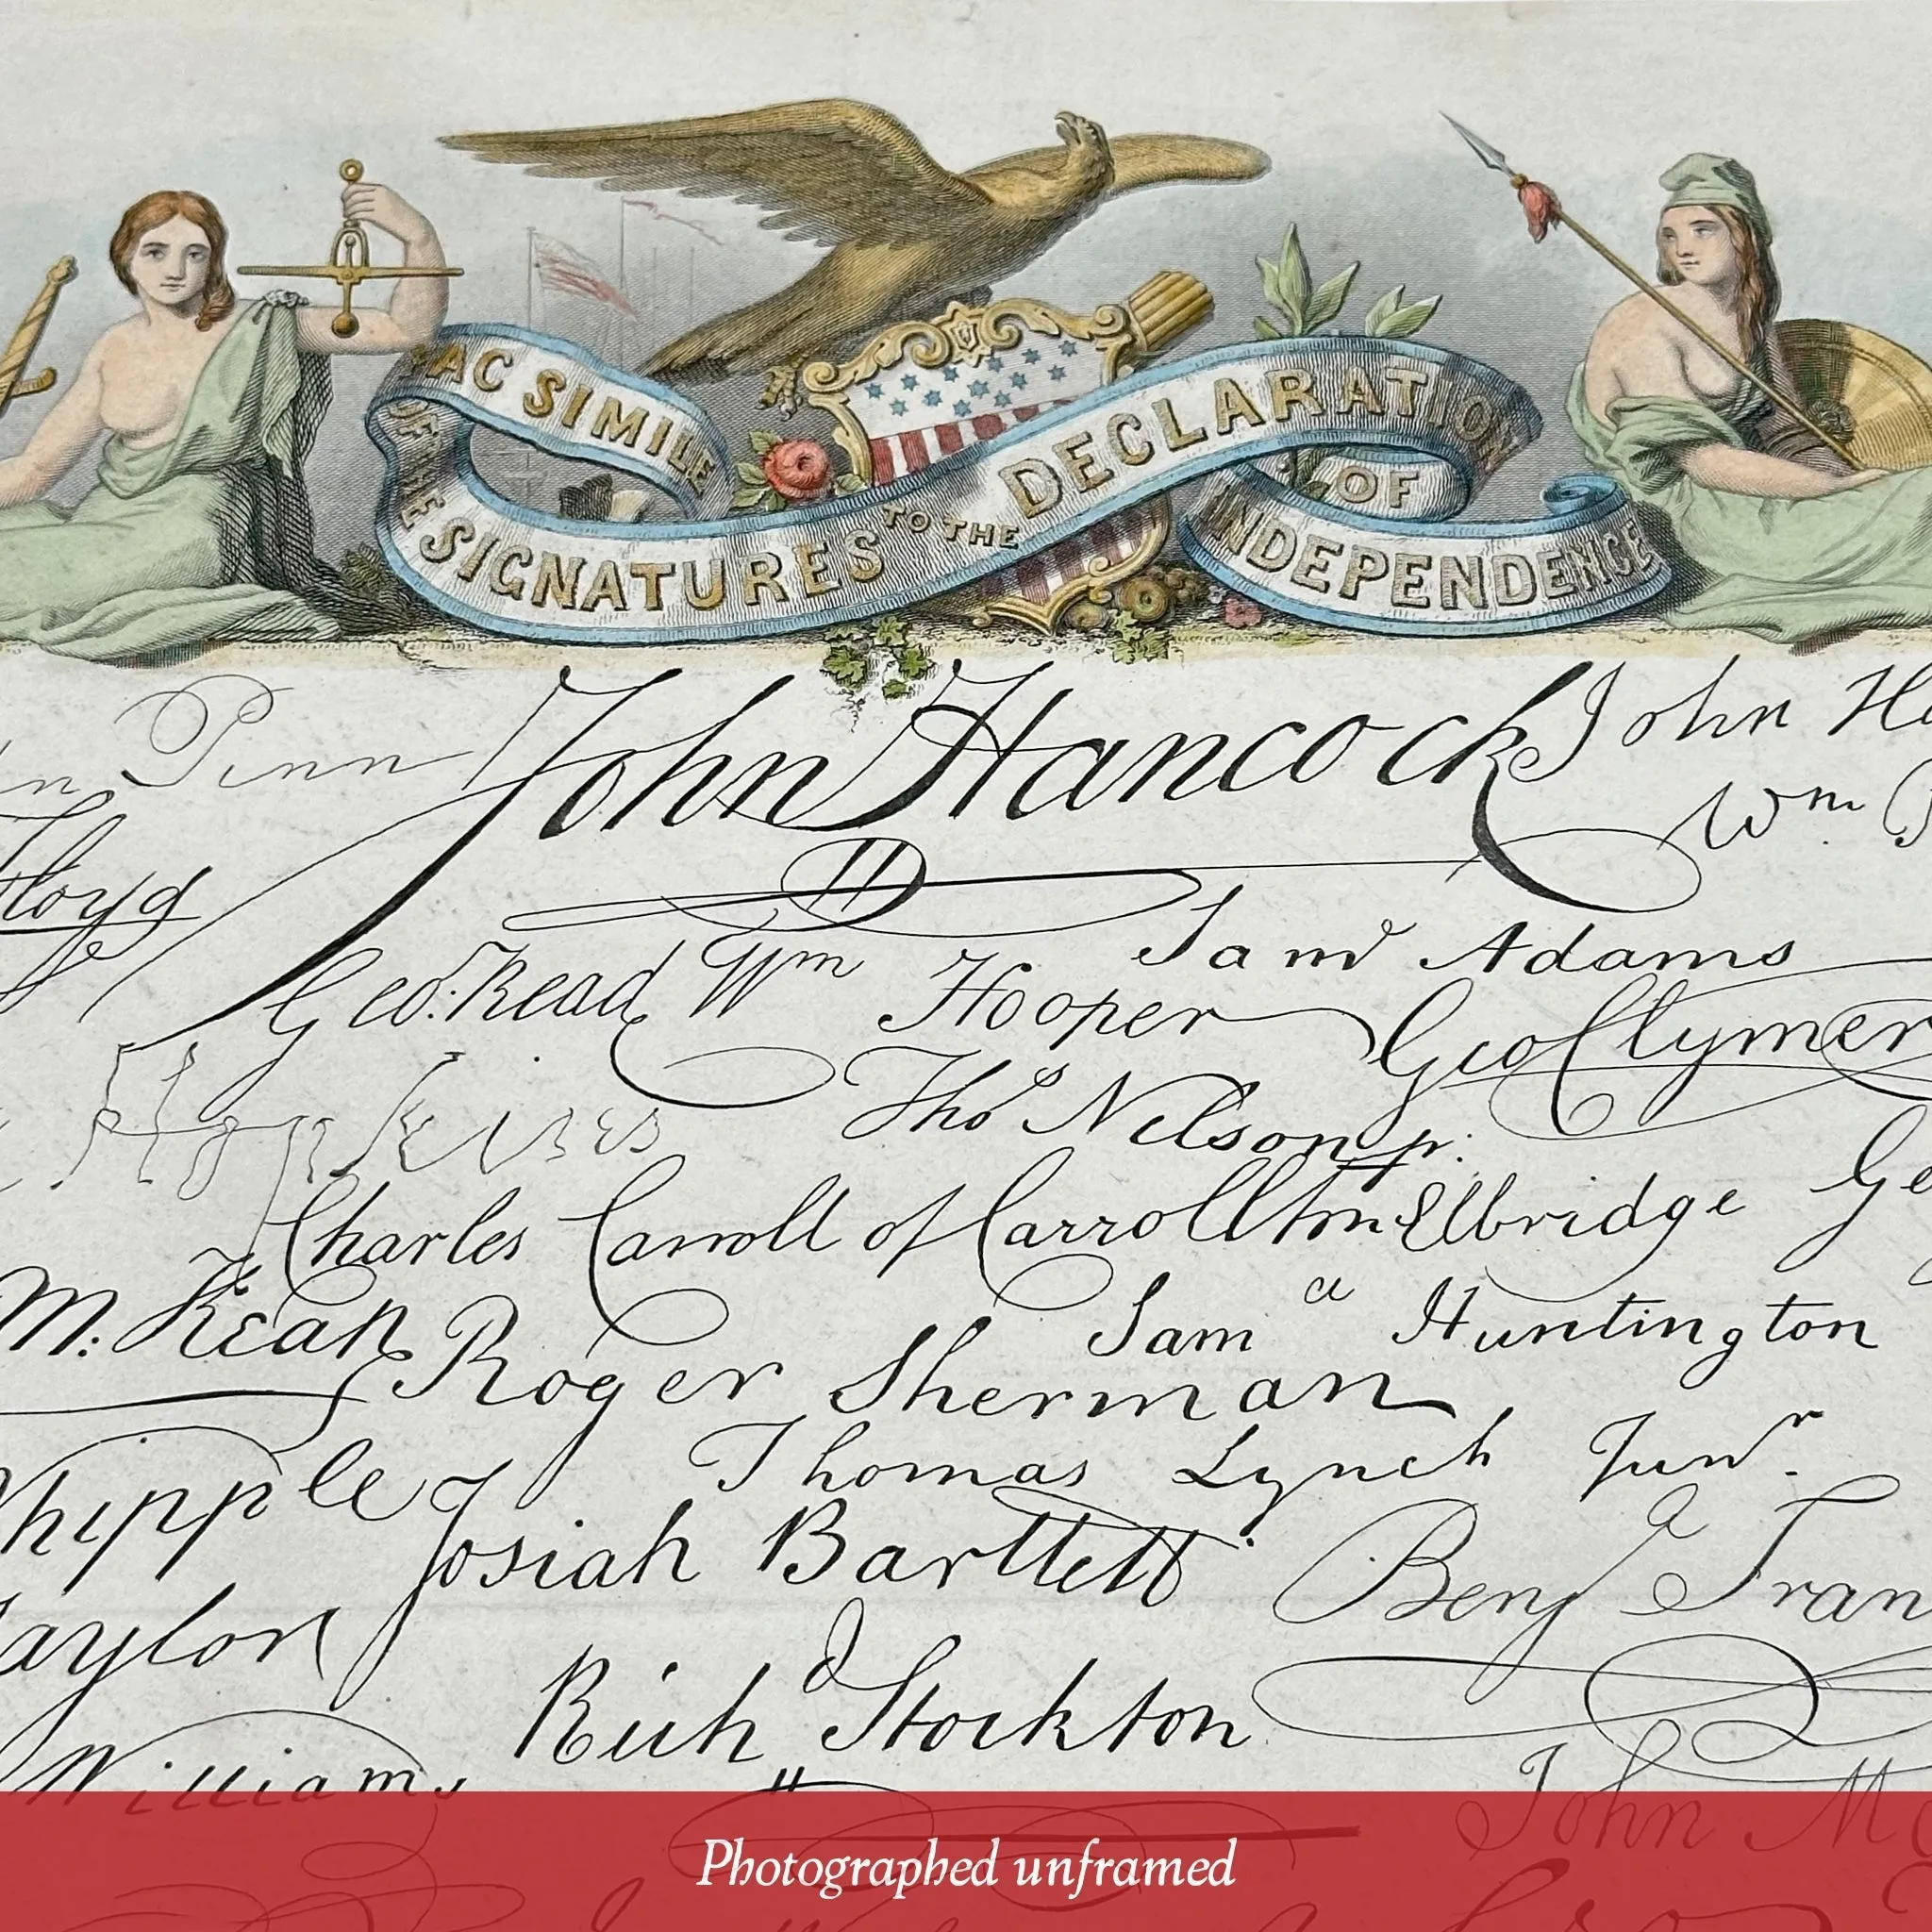 FAC SIMILE
OF THE
SIGNATURES TO THE DECLARATION
OF
INDEPENDENCE
Penn John Hancock John H
Wm
Floyd
Saml Adams
Geo. Read Wm Hooper Geo Clymer
Hopkins Thos Nelson jr.
Charles Carroll of Carrollton Elbridge Ge
M: Kean Saml Huntington
Roger Sherman
Whipple Thomas Lynch Junr.
Josiah Bartlett Benja Fran
Taylor
Richd Stockton
Williams John M
Photographed unframed